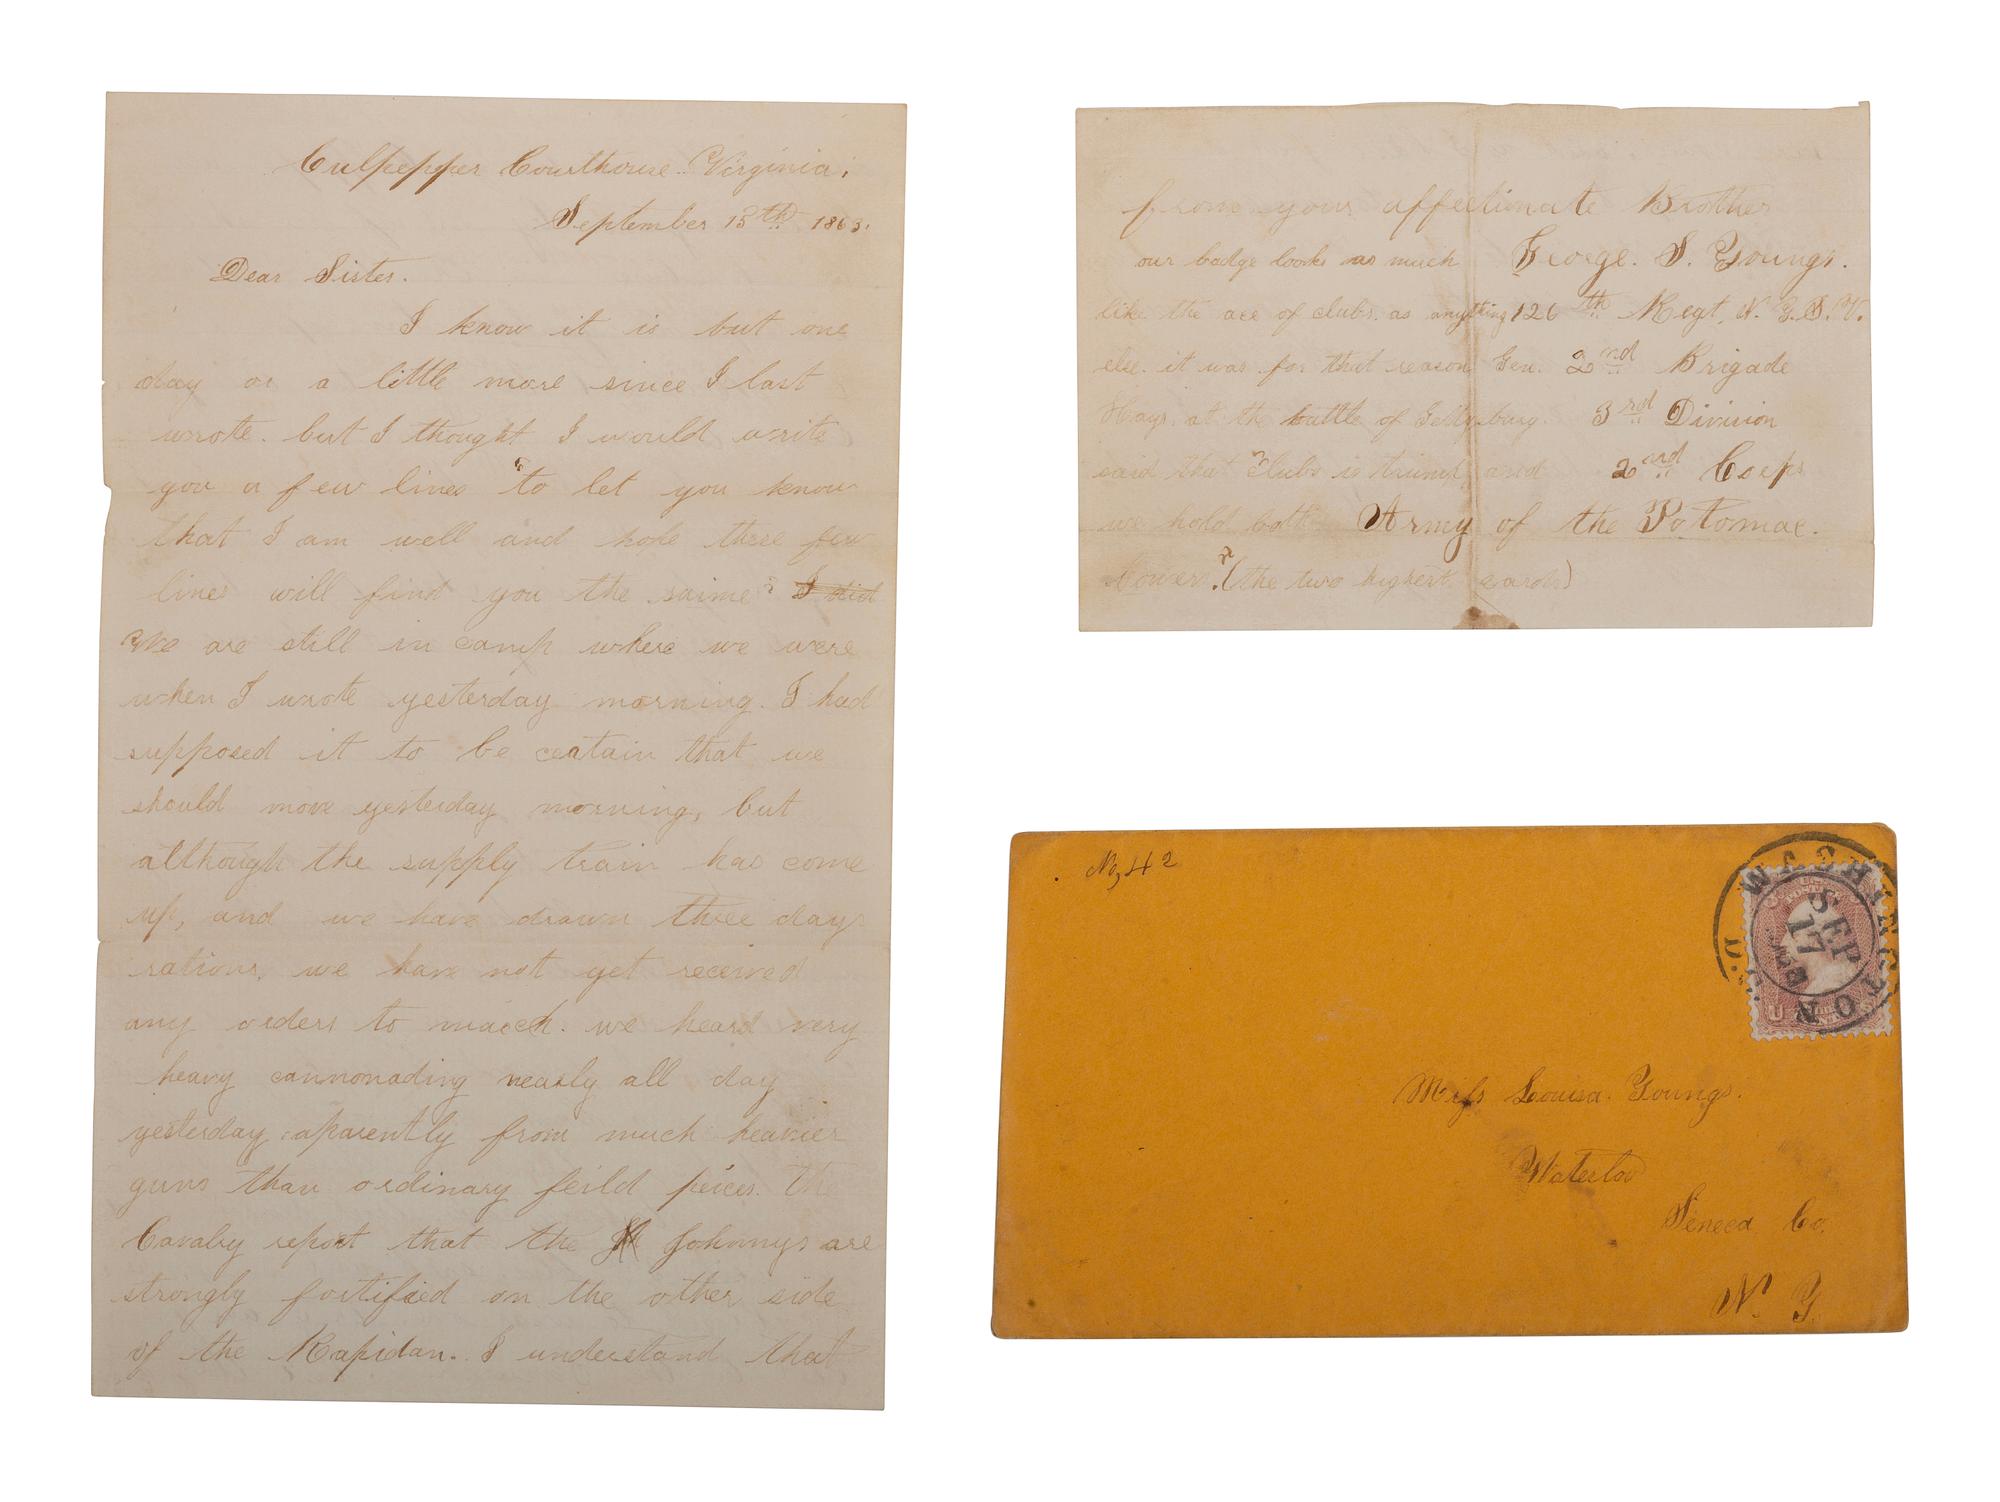 Culpepper Courthouse Virginia;
September 15th 1863.
Dear Sister.
I know it is but one
day or a little more since I last
wrote. but I thought I would write
you a few lines to let you know
that I am well and hope these few
lines will find you the saime I did
We are still in camp where we were
when I wrote yesterday morning. I had
supposed it to be ceatain that we
should move yesterday morning, but
although the supply train has come
up, and we have drawn three days
rations, we have not yet received
any orders to march. we heard very
heavy cannonading nearly all day
yesterday aparently from much heavier
guns than ordinary feild peices. The
Cavalry report that the Johnnys are
strongly fortified on the other side
of the Rapidan. I understand that
from your affectimate Brother
George. S. Youngs.
126th Regt. N.Y.S.V.
2nd Brigade
3rd Division
2nd Corps
Army of the Potomac.
our badge looks as much
like the ace of clubs. as anything
else. it was for that reason Gen.
Hays. at the battle of Gettysburg.
said that Clubs is trump, and
we hold both
bower. (the two highest cards)
No, 42
WASHINGTON D.C.
SEP
17
U
Miss Louisa. Youngs.
Waterloo
Seneca Co.
N. Y.